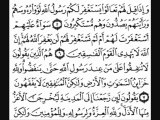 وَإِذَا قِيلَ لَهُمْ تَعَالَوْا يَسْتَغْفِرْ لَكُمْ رَسُولُ اللَّهِ لَوَّوْا رُءُوسَهُمْ
وَرَأَيْتَهُمْ يَصُدُّونَ وَهُم مُّسْتَكْبِرُونَ ۝ سَوَاءٌ عَلَيْهِمْ
أَسْتَغْفَرْتَ لَهُمْ أَمْ لَمْ تَسْتَغْفِرْ لَهُمْ لَن يَغْفِرَ اللَّهُ
لَهُمْ إِنَّ اللَّهَ لَا يَهْدِي الْقَوْمَ الْفَاسِقِينَ ۝ هُمُ الَّذِينَ يَقُولُونَ
لَا تُنفِقُوا عَلَىٰ مَنْ عِندَ رَسُولِ اللَّهِ حَتَّىٰ يَنفَضُّوا وَلِلَّهِ
خَزَائِنُ السَّمَاوَاتِ وَالْأَرْضِ وَلَٰكِنَّ الْمُنَافِقِينَ لَا يَفْقَهُونَ
۝ يَقُولُونَ لَئِن رَّجَعْنَا إِلَى الْمَدِينَةِ لَيُخْرِجَنَّ الْأَعَزُّ
مِنْهَا الْأَذَلَّ وَلِلَّهِ الْعِزَّةُ وَلِرَسُولِهِ وَلِلْمُؤْمِنِينَ وَلَٰكِنَّ